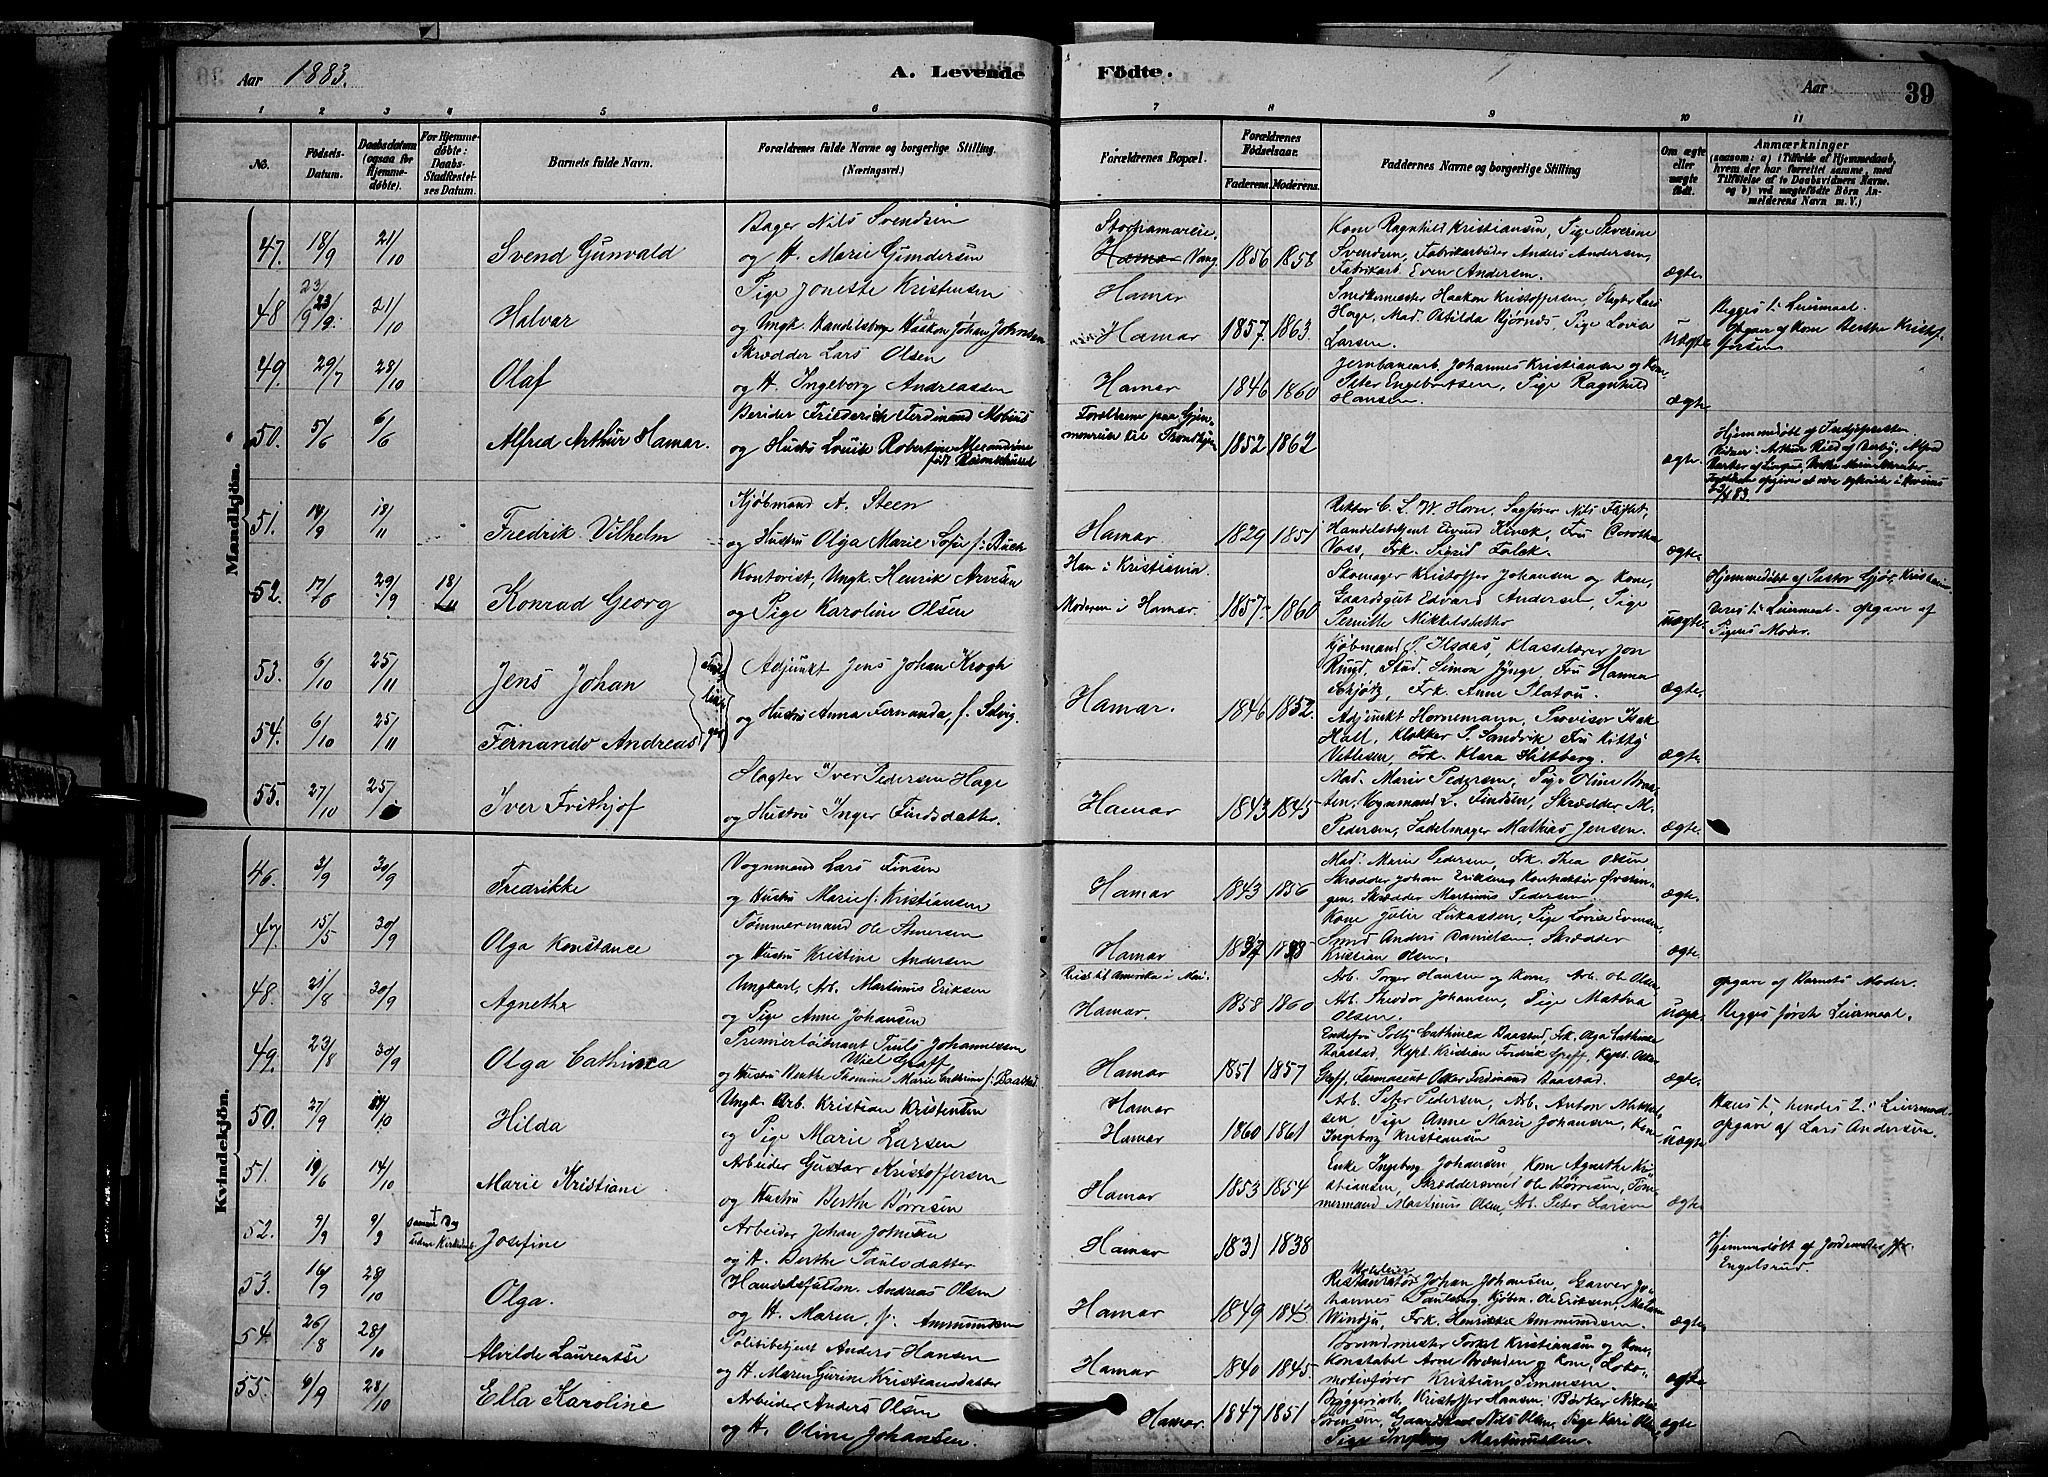 Aar 1883.
A. Levende Födte.
Aar
39
1 2 3 4 5 6 7 8 9 10 11
No.
Födsels-Datum.
Daabsdatum (ogsaa for Hjemmedøbte).
For Hjemmedøbte: Daabs-Stadfæstelses Datum.
Barnets fulde Navn.
Forældrenes fulde Navne og borgerlige Stilling. (Næringsvei.)
Forældrenes Bopæl.
Forældrenes Födselsaar.
Faderens. Moderens.
Faddernes Navne og borgerlige Stilling
Om ægte eller uægte födt.
Anmærkninger
(saasom: a) i Tilfælde af Hjemmedaab, hvem der har forrettet samme, med Tilföielse af to Daabsvidners Navne. og b) ved uægtefödte Börn Anmelderens Navn m. V.)
Mandkjön.
47. 18/9 21/10 Svend Gunvald
Bager Nils Svendsen
og H. Marie Gundersen
Vang 1856 1858
Kone Ragnhild Kristiansen, Pige Severine
Svendsen, Fabrikarbeider Anders Andersen,
Fabrikarb. Even Andersen. ægte
48 23/9 21/10 Halvar
Pige Joneste Kristensen
og Ungk. Handelsborger Haakon Johan Johnsen
Hamar
Hamar 1857. 1863.
Snedkermester Haakon Kristoffersen, Slagter Lars
Hage, Mad. Otilda Bjørnes, Pige Lovise
Larsen. uægte
Begges 1. Leiermaal.
Opgave af Kone Berthe Kristoffersen
49. 29/7 28/10 Olaf
Skrædder Lars Olsen
og H. Ingeborg Andreassen
Hamar 1846 1860
Jernbanearb. Johannes Kristiansen og Kone,
Peter Engebretsen, Pige Ragnhild
Hansen. ægte
50. 5/6 6/6 Alfred Arthur Hamar.
Berider Friederich Ferdinand Mobius
og Hustru Louise Robertine Alexandrine
født
Forældrene paa Gjennemreise til Trondhjem
1852 1862 ægte
Hjemmedøbt af
51. 14/9 18/11 Fredrik Vilhelm
Kjøbmand A. Steen
og Hustru Olga Marie Sofie f. Buch
Hamar 1829 1851
Rektor C. S. W Horn, Sagfører Nils
Handelsbetjent Eivind Kinck, Fru Dorothea
Voss, Frk. Sigrid Falck. ægte
52. 17/6 29/9 18/11 Konrad Georg
Kontorist, Ungk. Henrik Arvesen
og Pige Karoline Olsen
Han i Kristiania.
Moderen i Hamar. 1857- 1860
Skomager Kristoffer Johansen og Kone,
Gaardsgut Edvard Andersen, Pige
Pernille Mikkelsdatter uægte
Hjemmedøbt af Pastor Gjør, Kristiania
Deres 1. Leiermaal. opgave af
Pigens Moder.
53. 6/10 25/11 Jens Johan
54. 6/10 25/11 Fernando Andreas
Tvillinger
Adjunkt Jens Johan Krogh
og Hustru Anna Fernanda, f. Selvig.
Hamar. 1846 1852.
Kjøbmand P. Ilsaas, Klasselærer Jon
Ruud, Stud. Simon Jynge, Fru Hanna
Schjøtz, Frk. Anne Platou. ægte
Adjunkt Hornemann, Provisor Isak
Hall, Klokker P. Sandvik Fru Kitty
Frk. Klara Hiltberg. ægte.
55. 27/10 25/ Iver Frithjof
Slagter Iver Pedersen Hage
og Hustru Inger Findsdatter.
Hamar 1843 1845
Mad. Marie Pedersen, Pige Oline Braaten, Vognmand L. Findsen, Skrædder M.
Pedersen, Sadelmager Mathias Jensen. ægte
Kvindekjön.
46. 3/9 30/9 Fredrikke
Vognmand Lars Finsen
og Hustru Marie f. Kristiansen
Hamar 1843 1856
Mad. Marie Pedersen, Frk. Thea Olsen
Skrædder Johan Eriksen,
Skrædder Martinus Pedersen. ægte.
47. 15/5 30/9 Olga Konstance
Tømmermand Ole Simensen
og Hustru Kristine Andersen
Hamar
Kone Julie Lukassen, Pige Lovise Evensen,
Smed Anders Danielsen, Skrædder
Kristian Olsen. ægte
48. 21/8 30/9 Agnethe
Ungkarl, Arb. Martinus Eriksen
og Pige Anne Johansen
Reist til Amerika i Mai.
Hamar. 1858 1860
Arb. Torger Hansen og Kone, Arb. Ole Olsen,
Arb. Theodor Johansen, Pige Mathea
Olsen. uægte
opgave af Barnets Moder.
Begges første Leiermaal.
49. 23/8 30/9 Olga Cathinca
Premierløitnant Truls Johannessen
Wiel Graff
og Hustru Berthe Thomine Marie Cathrine f. Baastad
Hamar 1851 1857
Enkefru Polly Cathinca Baastad, Frk. Olga Cathinca
Baastad, Kapt. Kristian Fredrik Graff, Kapt. Oskar
Graff, Farmaceut Oskar Ferdinand Baastad. ægte.
50. 27/9 14/10 Hilda
Ungk. Arb. Kristian Kristensen
og Pige Marie Larsen
Hamar
Hamar 1860 1861
Arb. Peter Pedersen, Arb. Anton Mikkelsen, Pige Anne Marie Johansen, Kone
Ingeborg Kristiansen uægte
Hans 1, hendes 2. Leiermaal
opgave af Lars Andersen.
51. 19/6 14/10 Marie Kristiane
Arbeider Gustav Kristoffersen
og Hustru Berthe Børresen
Hamar 1853 1854
Enke Ingeborg Johansen, Kone Agnethe Kristiansen, Skræddersvend Ole Børresen, Tømmermand Martinus Olsen, Arb. Peter Larsen ægte
52. 9/9 9/9 † samme Dag
Josefine
Arbeider Johan Johnsen
og H. Berthe Paulsdatter
Hamar 1831 1838
Hjemmedøbt af Jordemoder
Engelsrud
53. 16/9 28/10 Olga.
Handelsfuldm. Andreas Olsen
og H. Maren, f. Ammundsen
Hamar 1849 1843
Restauratør Johan Johansen, Garver Johannes Paulsberg, Kjøbm. Ole Eriksen,
Frk. Henrikke Ammundsen. ægte
54 26/8 28/10 Alvilde Laurentse
Politibetjent Anders Hansen
og H. Maren Gurine Kristiansdatter
Hamar 1840 1845
Brandmester Torkel Kristiansen og Kone,
Konstabel Arne Brænden og Kone, Lokomotivfører Kristian Simensen. ægte
55. 6/9 28/10 Ella Karoline
Arbeider Anders Olsen
og H. Oline Johansen.
Hamar. 1847 1851
Bryggeriarb. Kristoffer Hansen, Børker Nikolai
Sørensen, Nils Olsen, Pige Kari Olsen,
Pige Ingeborg Martinusdatter. ægte